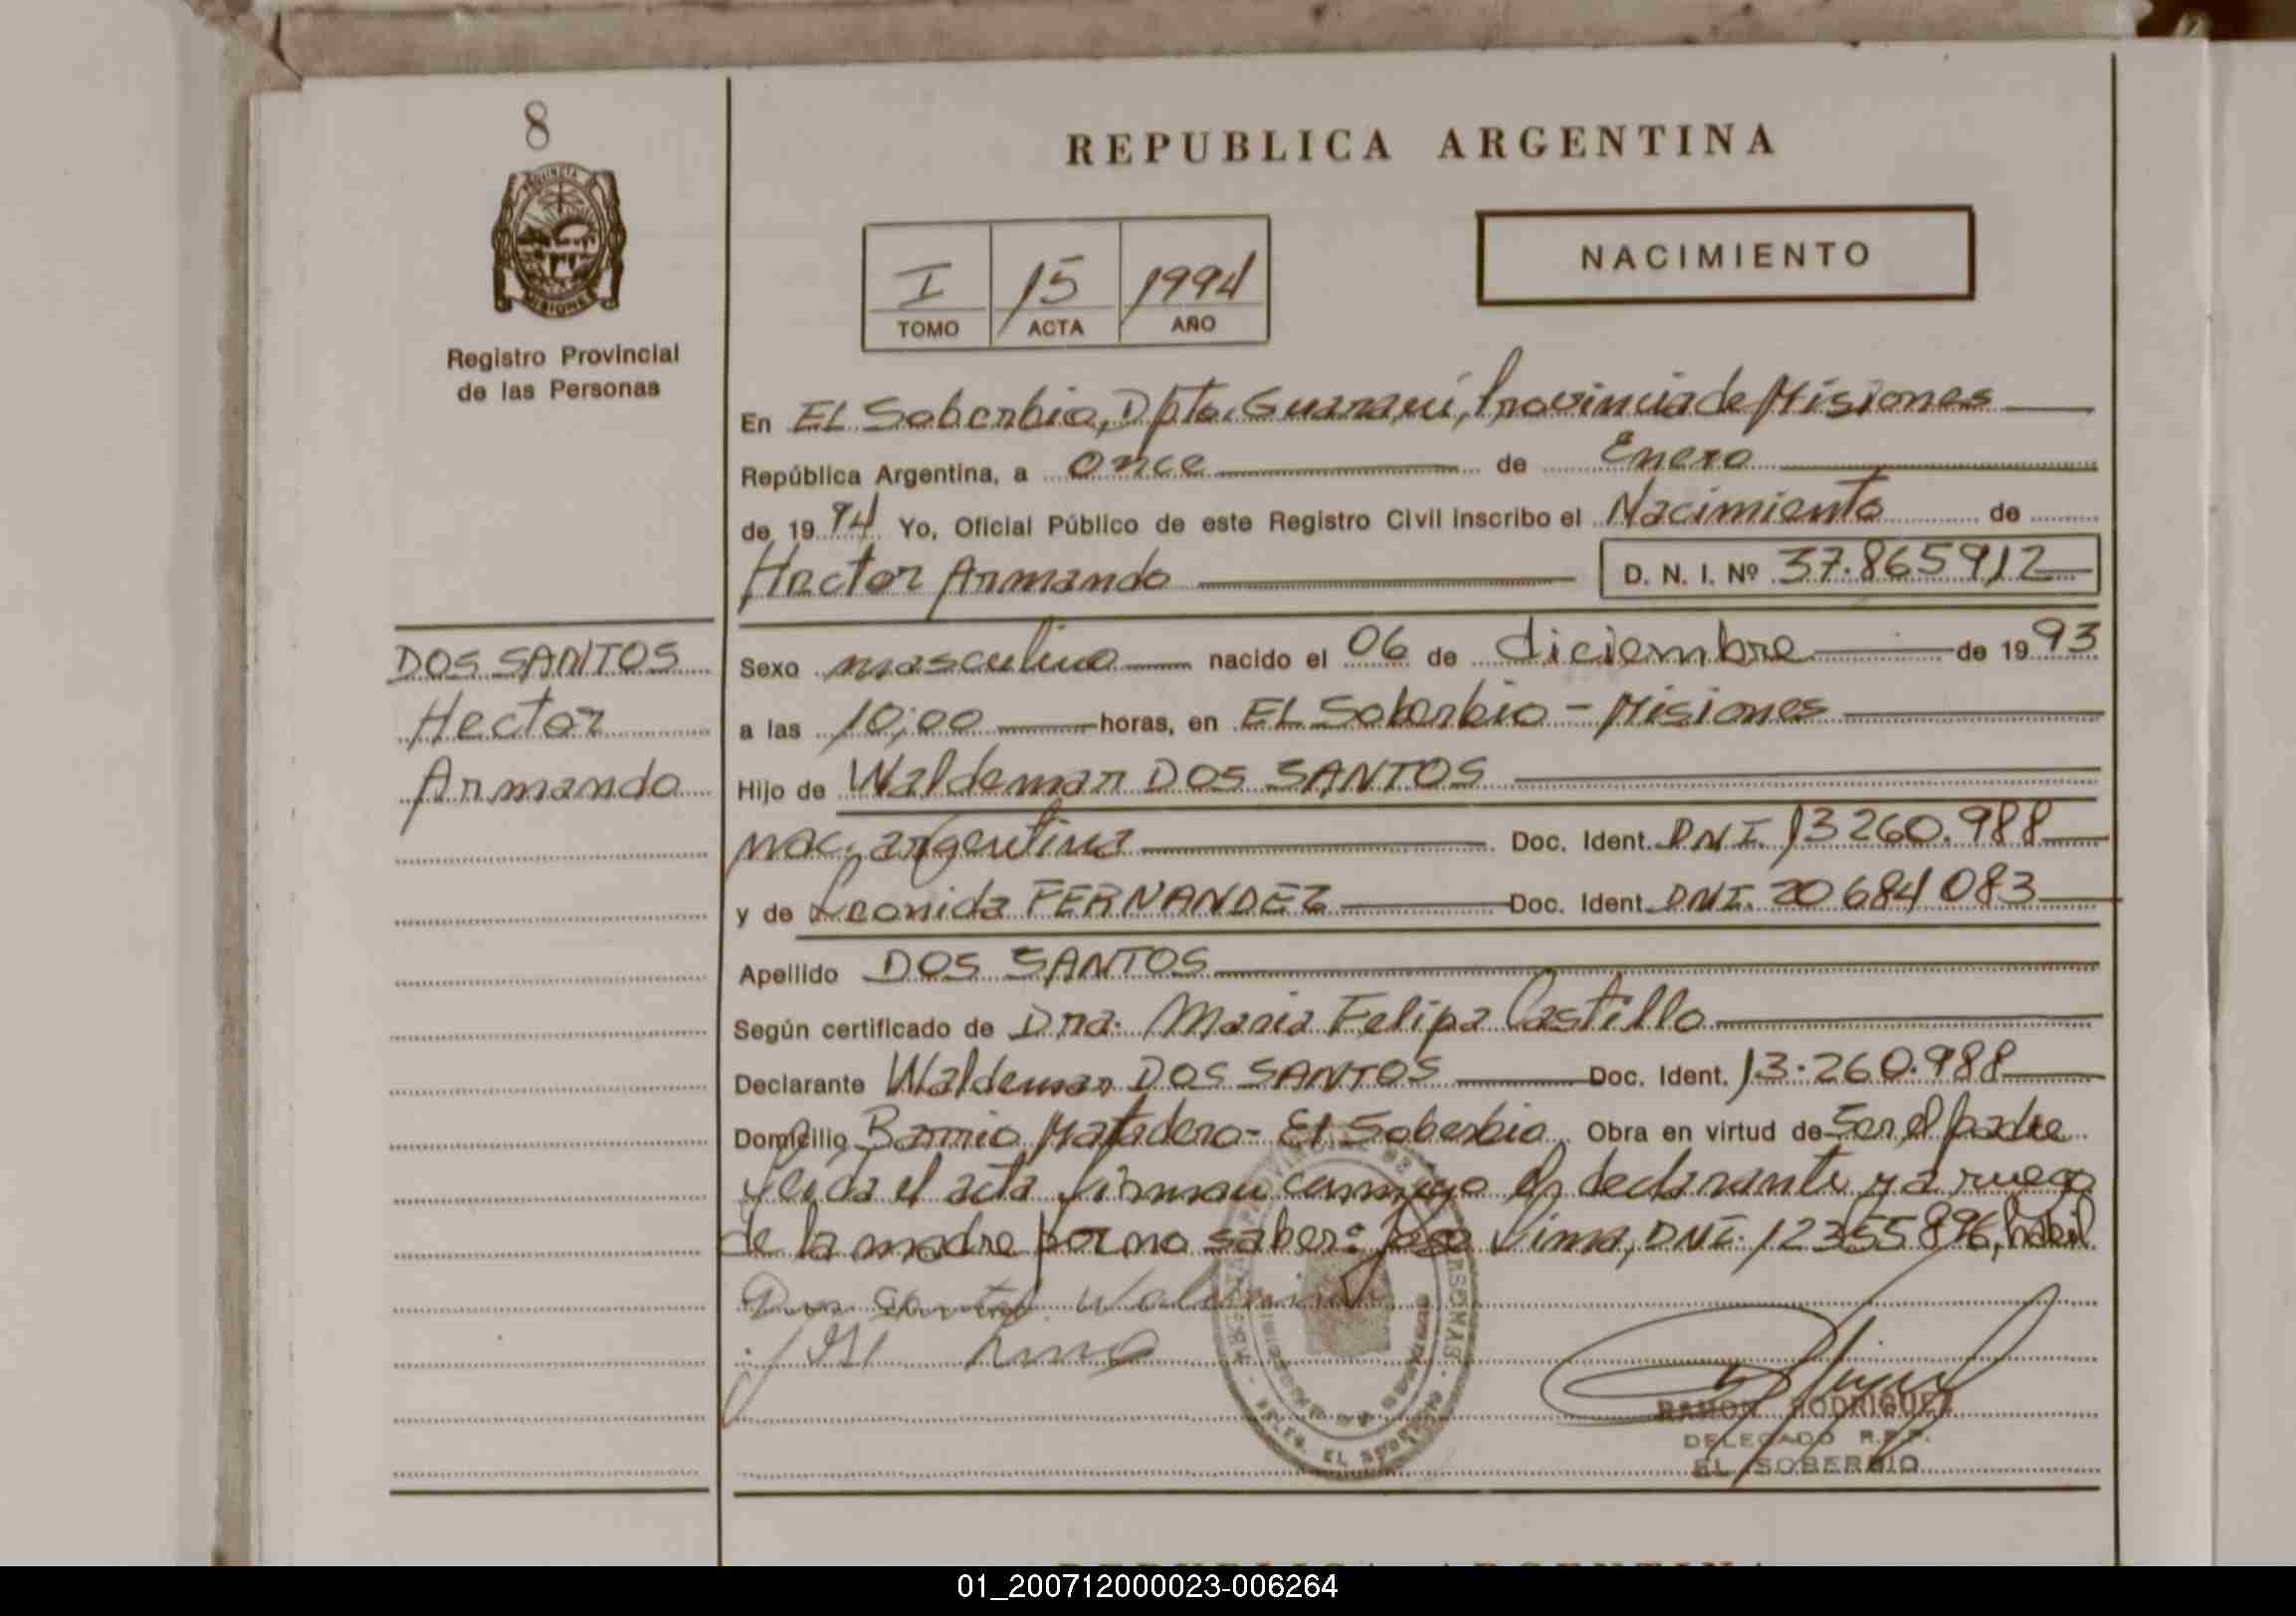 8
PROVINCIA
MISIONES
Registro Provincial
de las Personas
REPUBLICA ARGENTINA
I 15 1994
TOMO ACTA AÑO
NACIMIENTO
En EL Soberbio, Dpto. Guaraní, Provincia de Misiones
República Argentina, a Once de Enero
de 19 94 Yo, Oficial Público de este Registro Civil inscribo el Nacimiento de
Hector Armando D. N. I. Nº 37.865912
DOS SANTOS
Hector
Armando
Sexo masculino nacido el 06 de diciembre de 19 93
a las 10;00 horas, en EL Soberbio - Misiones
Hijo de Waldemar DOS SANTOS
nac. argentina Doc. Ident. DNI. 13260.988
y de Leonida FERNANDEZ Doc. Ident. DNI. 20684083
Apellido DOS SANTOS
Según certificado de Dra. Maria Felipa Castillo
Declarante Waldemar DOS SANTOS Doc. Ident. 13.260.988
Domicilio Barrio Matadero - El Soberbio Obra en virtud de Ser el padre
Leida el acta firman conmigo el declarante y a ruego
de la madre por no saber: Jose Lima, DNI. 12355896, habil
Dos Santos Waldemar
Jose Lima
RAMON RODRIGUEZ
DELEGADO R.P.P.
EL SOBERBIO
01_200712000023-006264